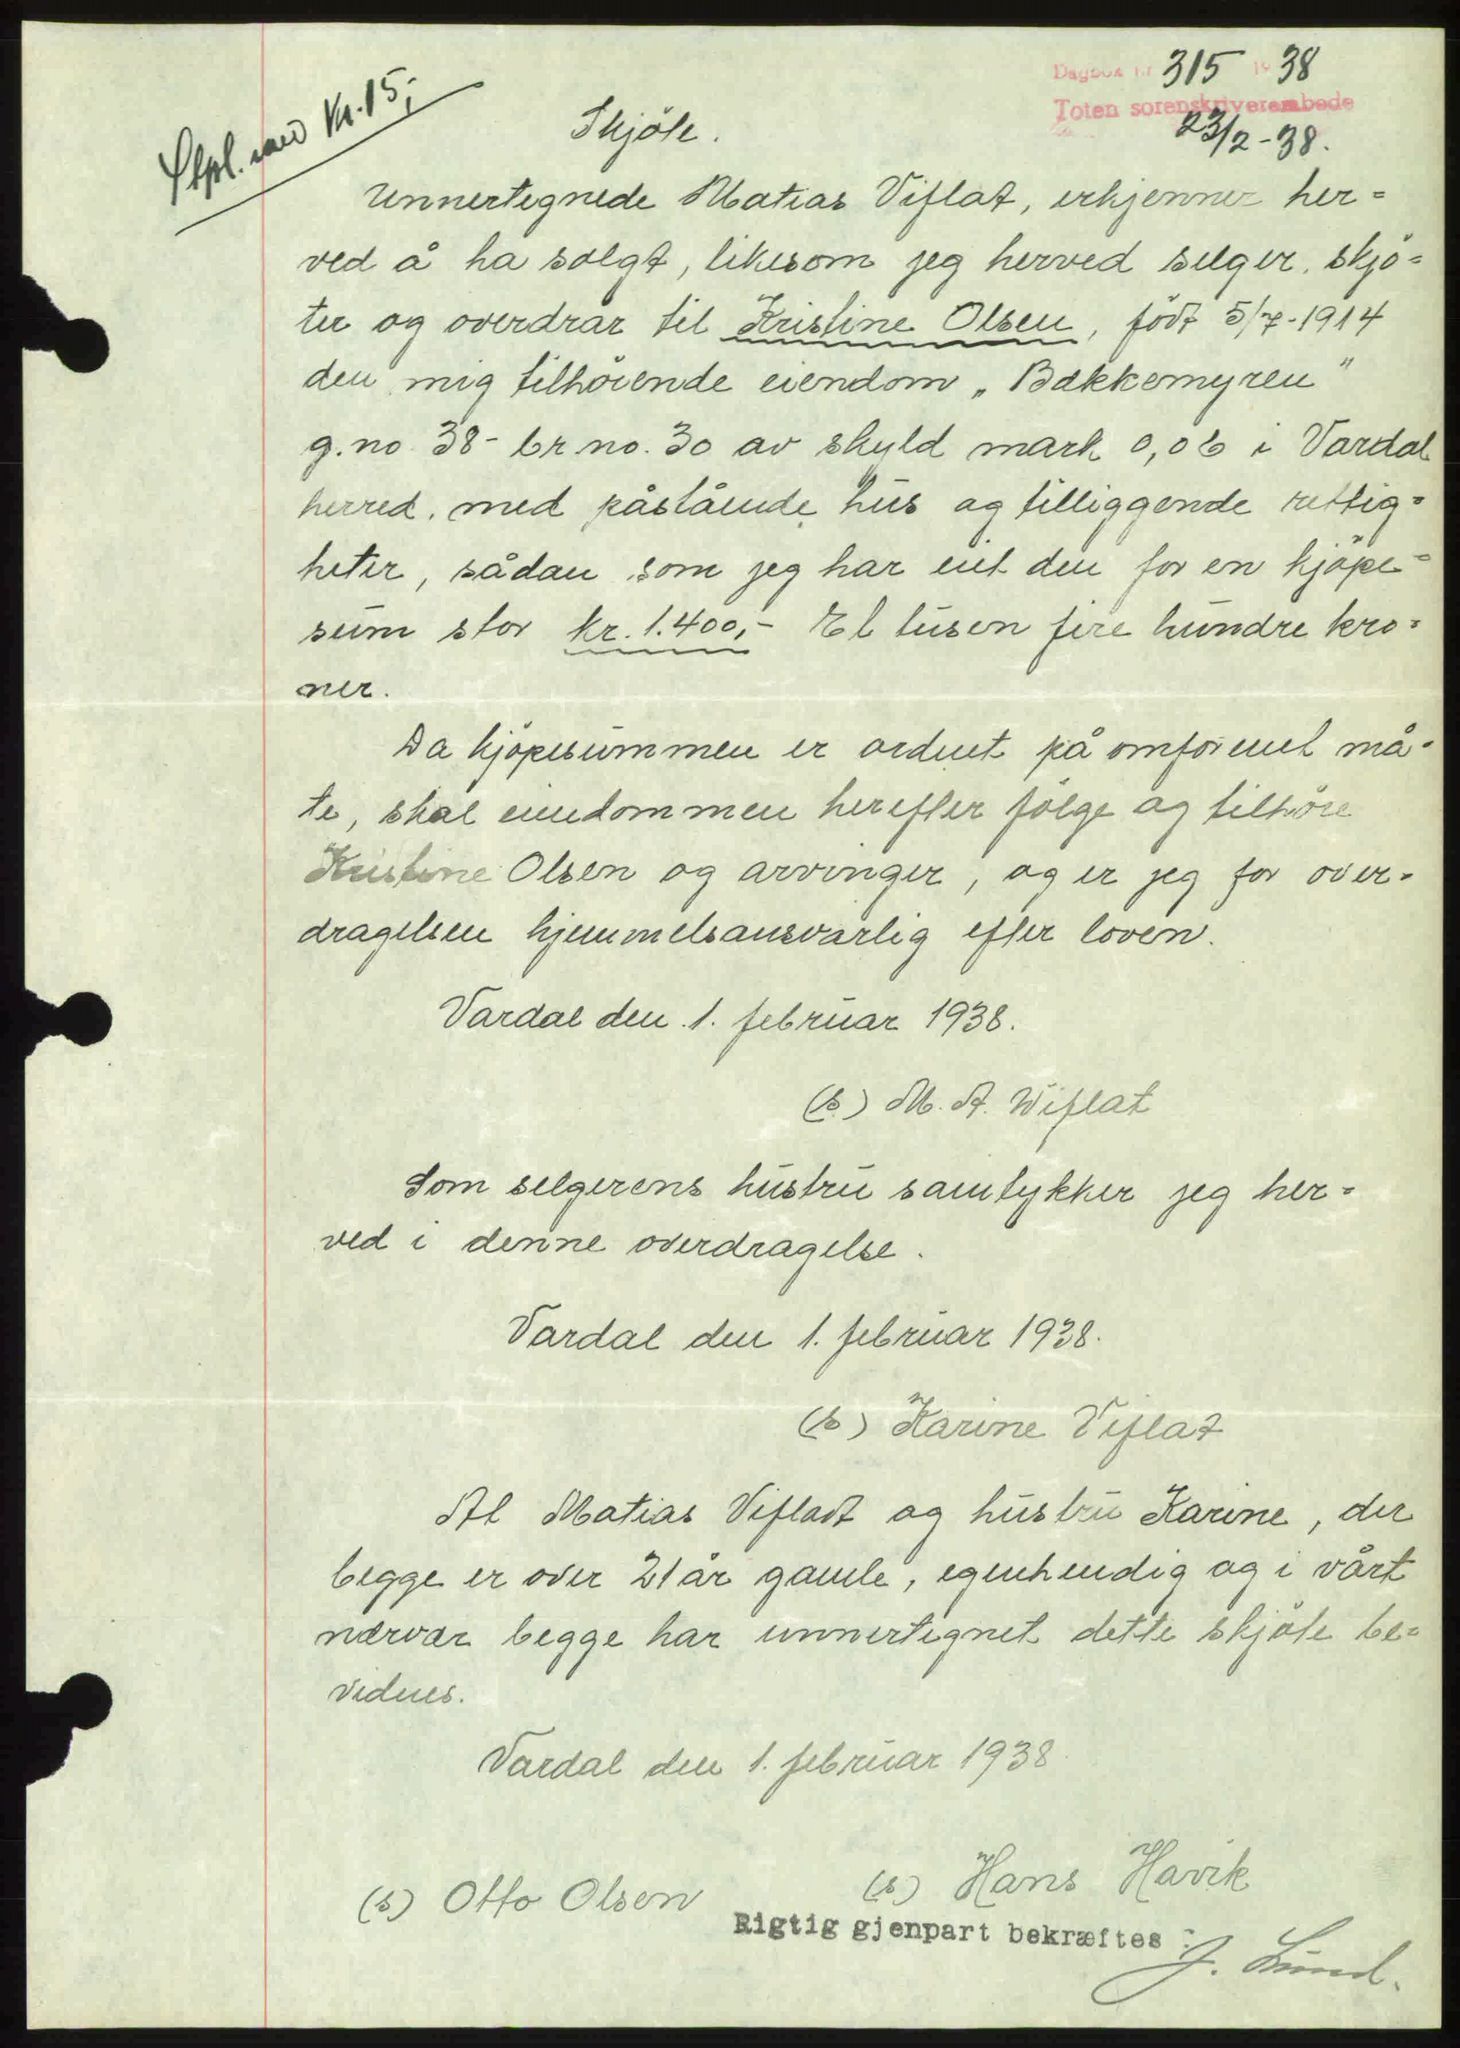 Dagbok nr 315 1938
Toten sorenskriverembede
23/2-38.
Stpl. med Kr. 15,-
Skjöte.
Unnertegnede Matias Viflat, erkjenner her=
ved å ha solgt, likesom jeg herved selger, skjö=
ter og overdrar til Kristine Olsen, födt 5/7-1914
den mig tilhörende eiendom „Bakkemyren"
g.no. 38 - br.no. 30 av skyld mark 0,06 i Vardal
herred, med påstående hus og tilliggende rettig=
heter, sådan som jeg har eiet den for en kjöpe=
sum stor kr. 1.400,- Et tusen fire hundre kro=
ner.
Da kjöpesummen er ordnet på omforenet må=
te, skal eiendommen herefter fölge og tilhöre
Kristine Olsen og arvinger, og er jeg for over=
dragelsen hjemmelsansvarlig efter loven.
Vardal den 1. februar 1938.
(s) M. A. Wiflat
Som selgerens hustru samtykker jeg her=
ved i denne overdragelse.
Vardal den 1. februar 1938.
(s) Karine Viflat
At Matias Viflat og hustru Karine, der
begge er over 21 år gamle, egenhendig og i vårt
nærvær begge har unnertegnet dette skjöte be=
vidnes.
Vardal den 1. februar 1938
(s) Otto Olsen (s) Hans Havik
Rigtig gjenpart bekræftes:
J. Lund.